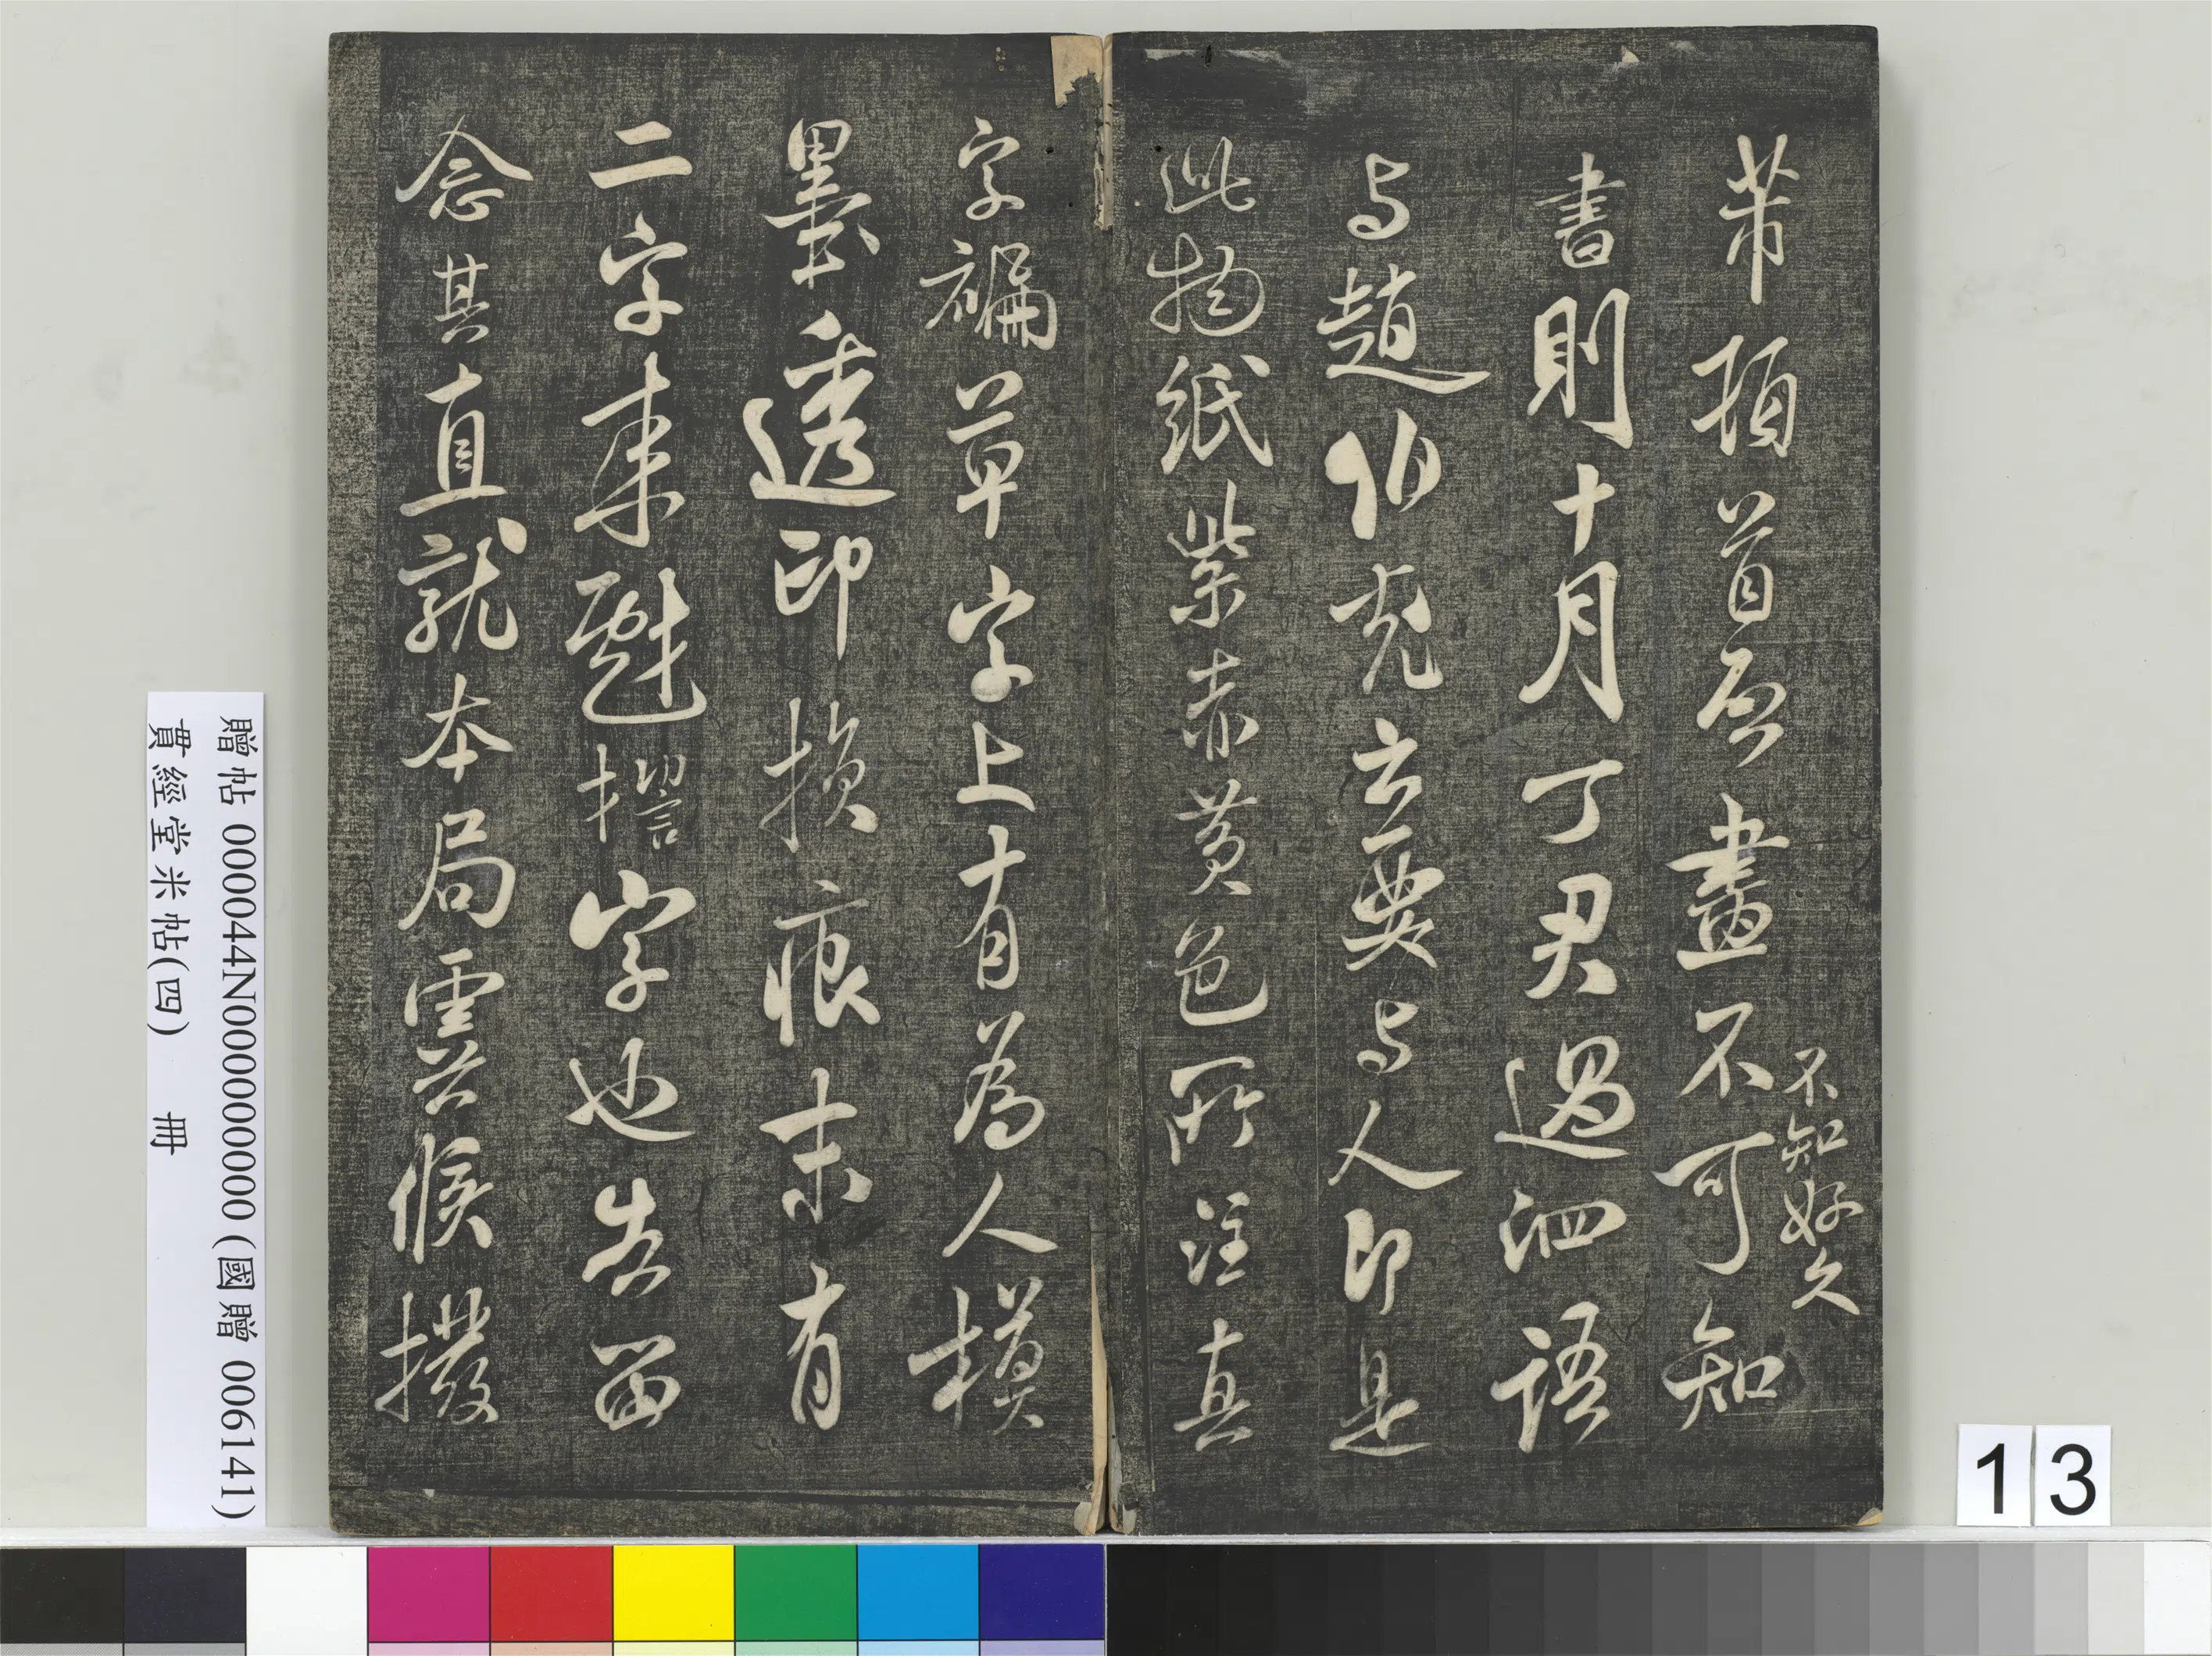 芾頓首启畫不可知
不知好久
書則十月丁君過泗語
与趙伯充云要与人即是
此物紙紫赤黃色所注真
字褊草字上有為人模
墨透印損痕末有
二字来戲
字也告留
念其直就本局雲云候撥
贈帖 000044N000000000 (國贈 006141)
貫經堂米帖(四) 冊
13